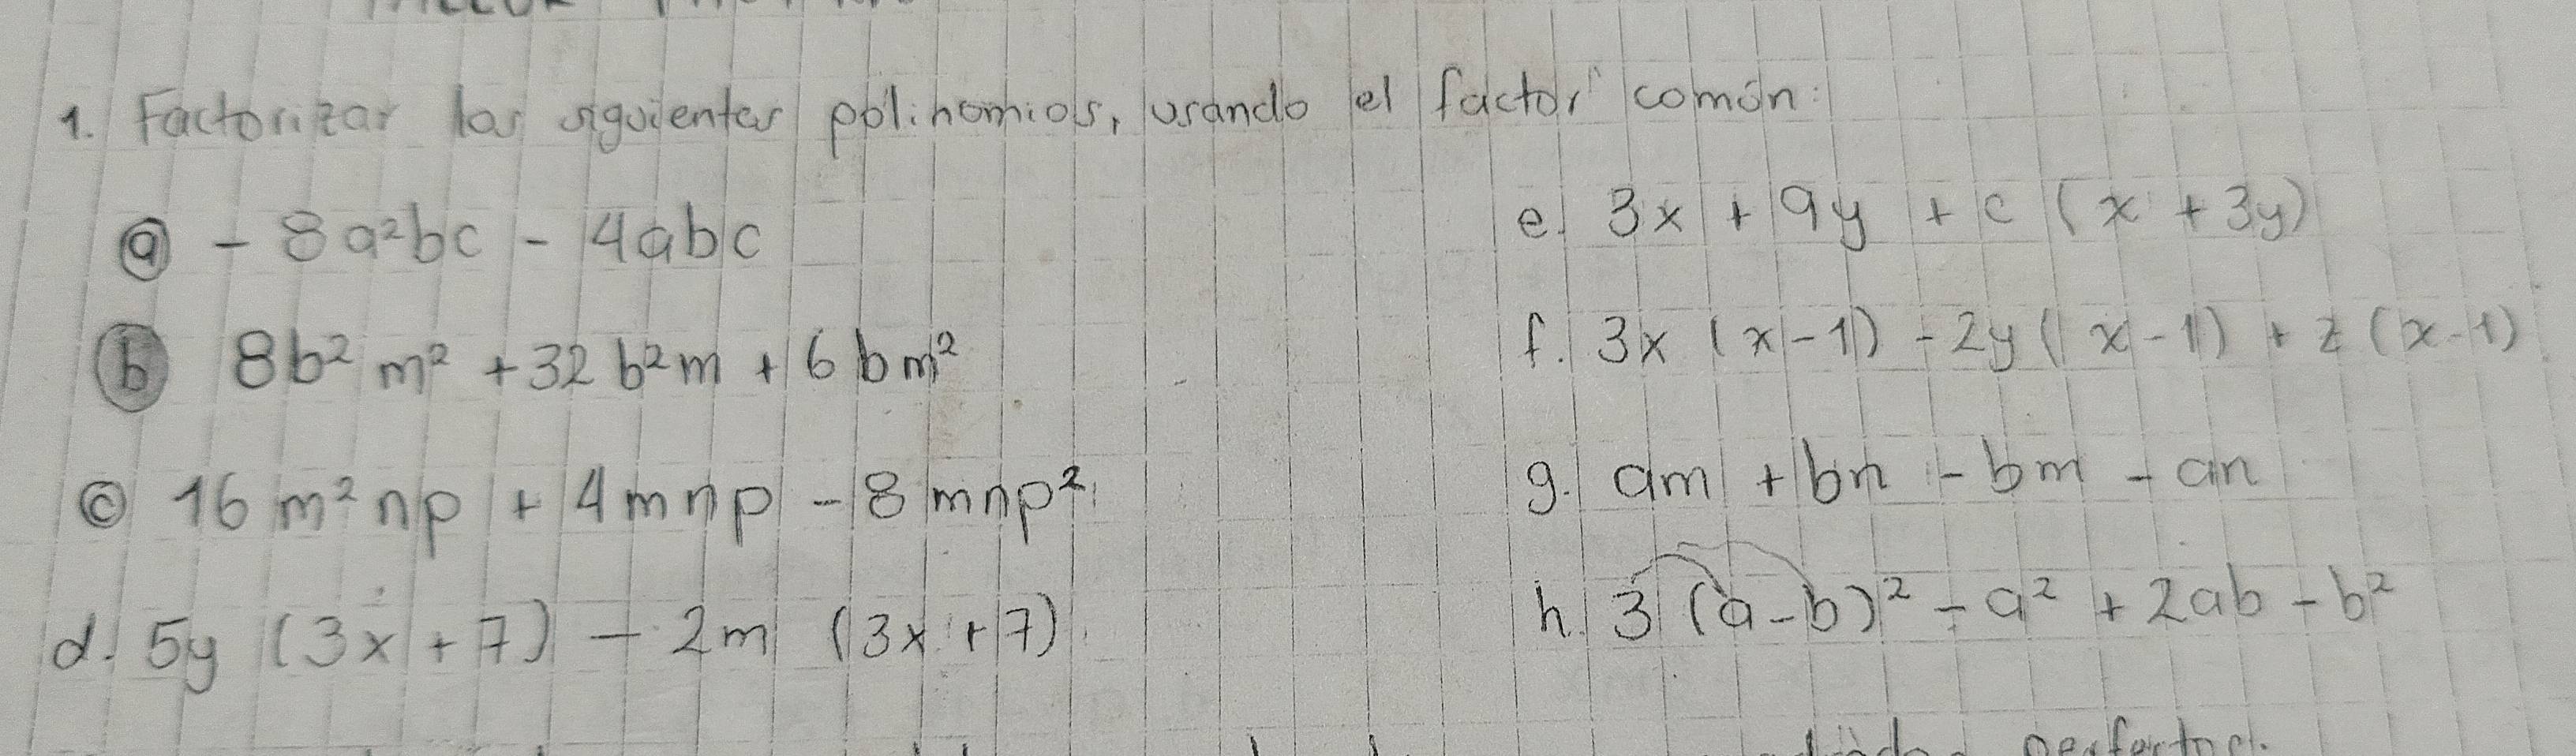 1. Factorizar los siguientes polinomios, usando el factor común:
ⓐ - 8a²bc - 4abc
ⓑ 8b²m² + 32b²m + 6bm²
ⓒ 16m²np + 4mnp - 8mnp²
d. 5y (3x + 7) - 2m (3x + 7)
e. 3x + 9y + c (x + 3y)
f. 3x (x - 1) - 2y (x - 1) + z (x - 1)
g. am + bn - bm - an
h. 3 (a - b)² - a² + 2ab - b²